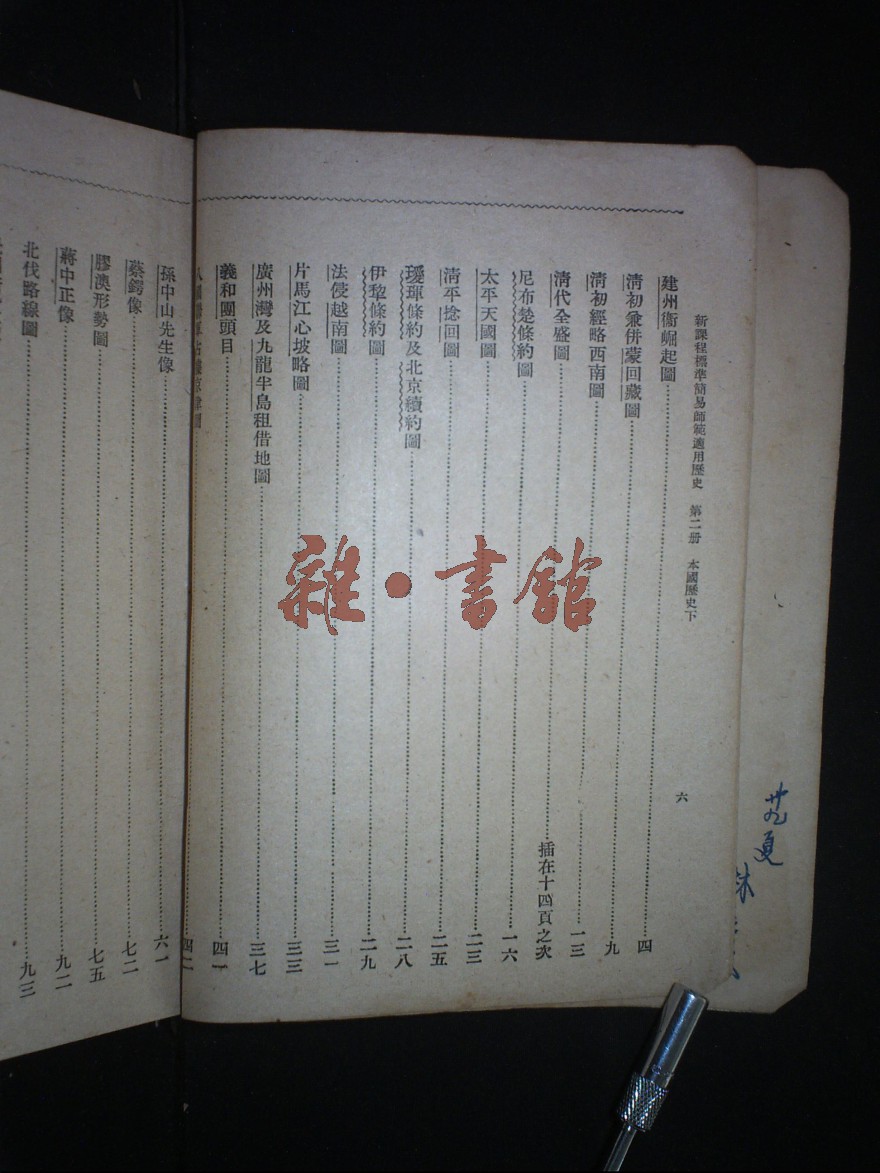 新課程標準簡易師範適用歷史　第二册　本國歷史下　六
建州衞崛起圖……四
清初兼併蒙回藏圖……九
清初經略西南圖……一三
清代全盛圖……插在十四頁之次
尼布楚條約圖……一六
太平天國圖……二三
清平捻回圖……二五
璦琿條約及北京續約圖……二八
伊犂條約圖……二九
法侵越南圖……三一
片馬江心坡略圖……三三
廣州灣及九龍半島租借地圖……三七
義和團頭目……四一
圖……四二
孫中山先生像……六一
蔡鍔像……七二
膠澳形勢圖……七五
蔣中正像……九二
北伐路線圖……九三
雜·書館
夏
林